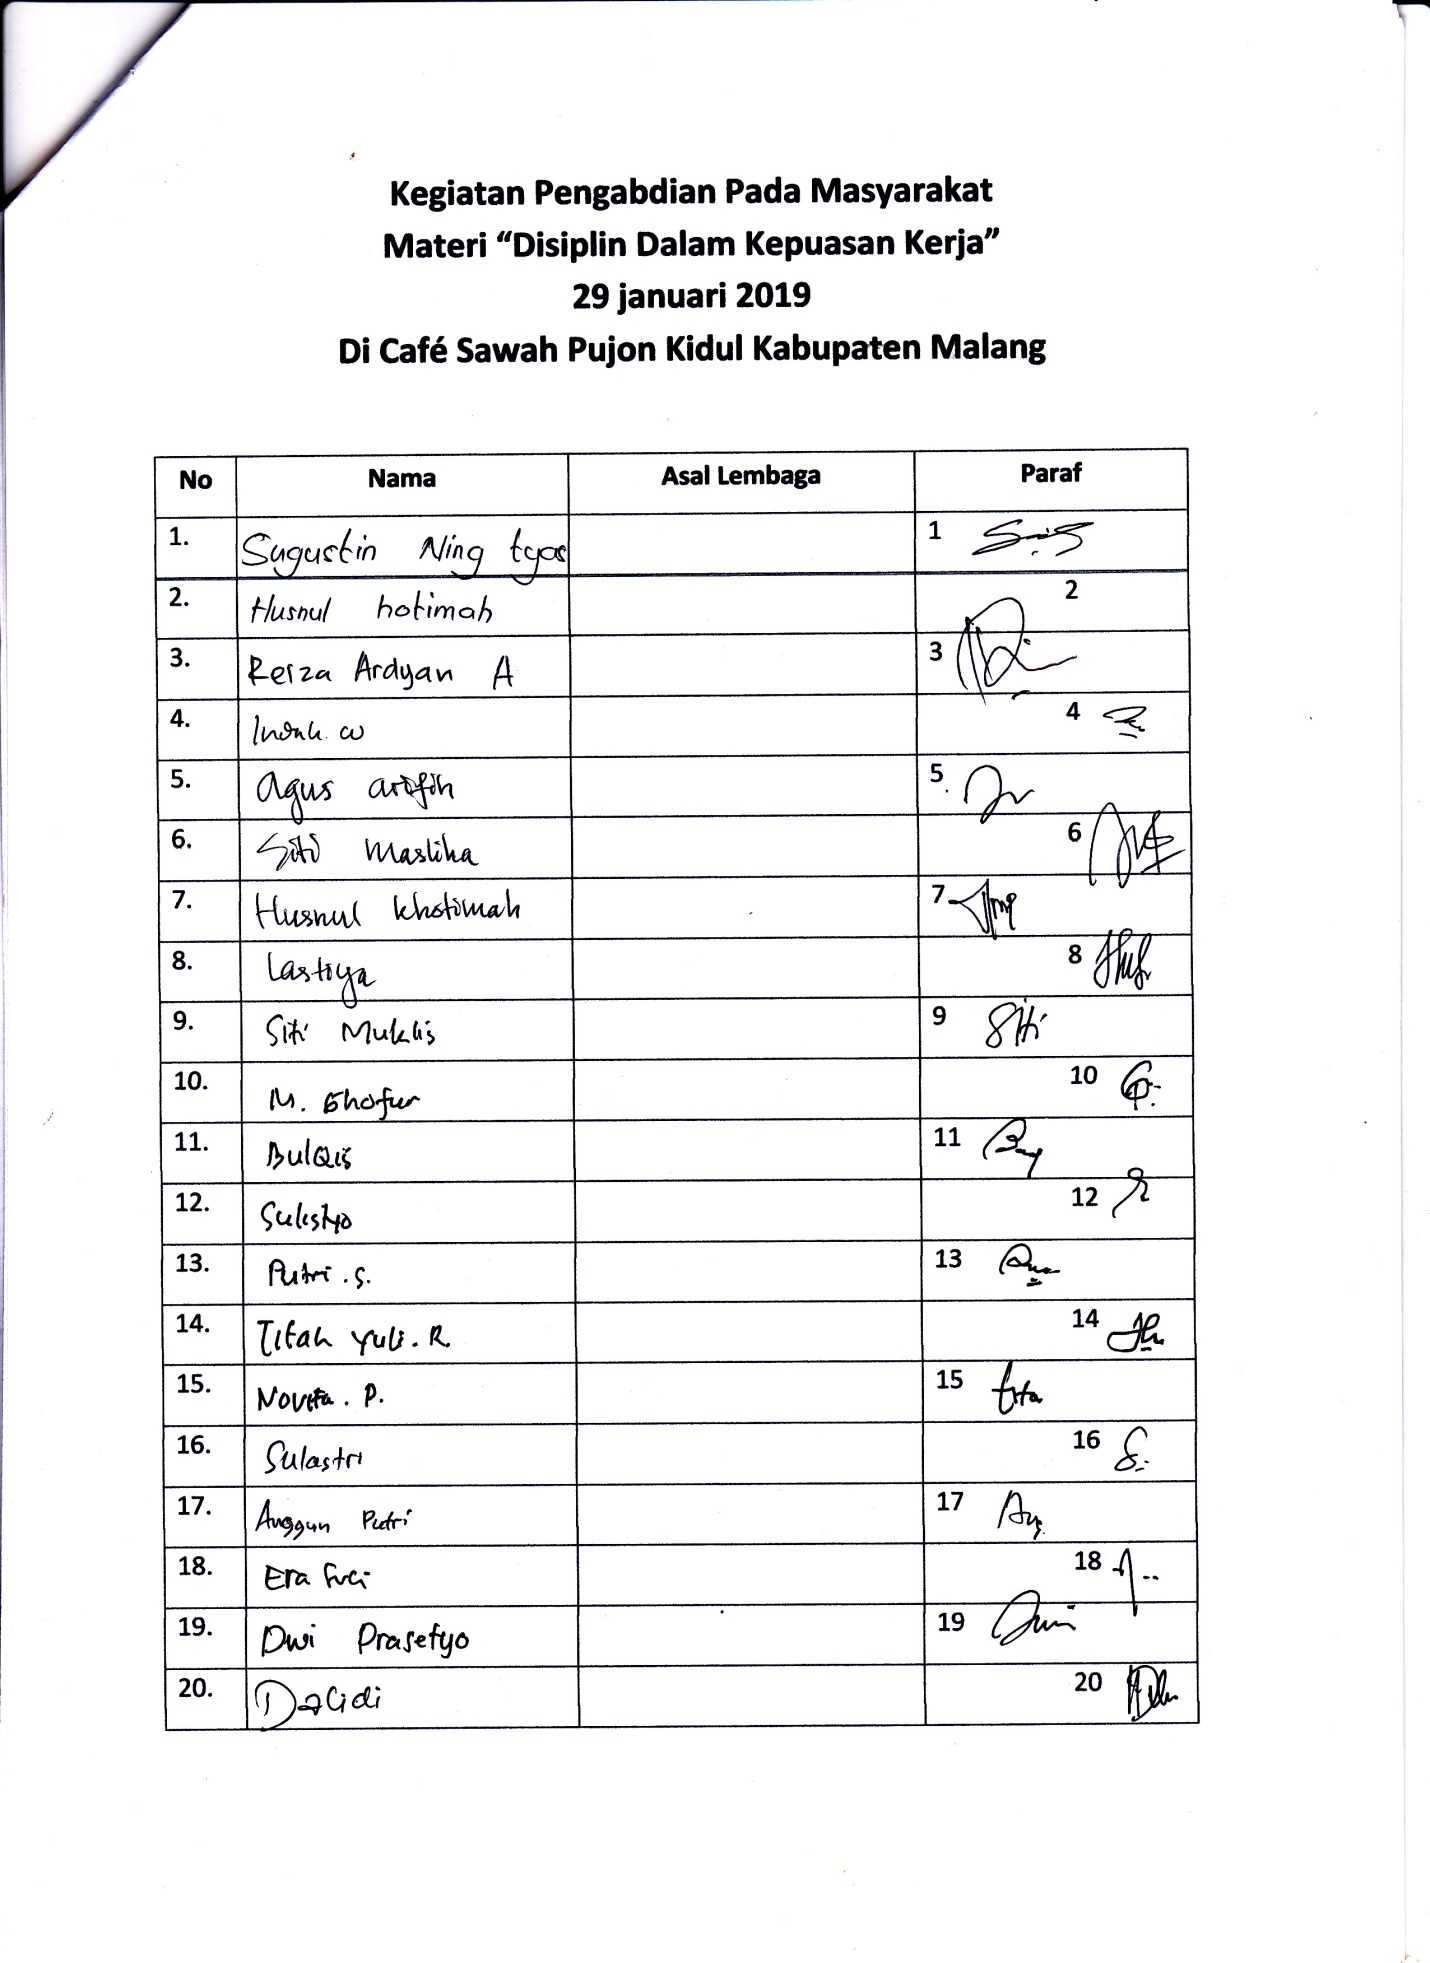 Kegiatan Pengabdian Pada Masyarakat
Materi “Disiplin Dalam Kepuasan Kerja”
29 januari 2019
Di Café Sawah Pujon Kidul Kabupaten Malang
No Nama Asal Lembaga Paraf
1. Sugustin Ning tyas 1
2. Husnul hotimah 2
3. Reiza Ardyan A 3
4. Indah. w 4
5. Agus arifin 5.
6. Siti Maslika 6
7. Husnul khotimah 7
8. Lastiya 8
9. Siti Muklis 9 Siti
10. M. Ghofur 10
11. BulQis 11
12. Sulistyo 12
13. Putri . S. 13
14. Titah Yuli . R. 14
15. Novita . P. 15
16. Sulastri 16
17. Anggun Putri 17
18. Era Suci 18
19. Dwi Prasetyo 19
20. 20